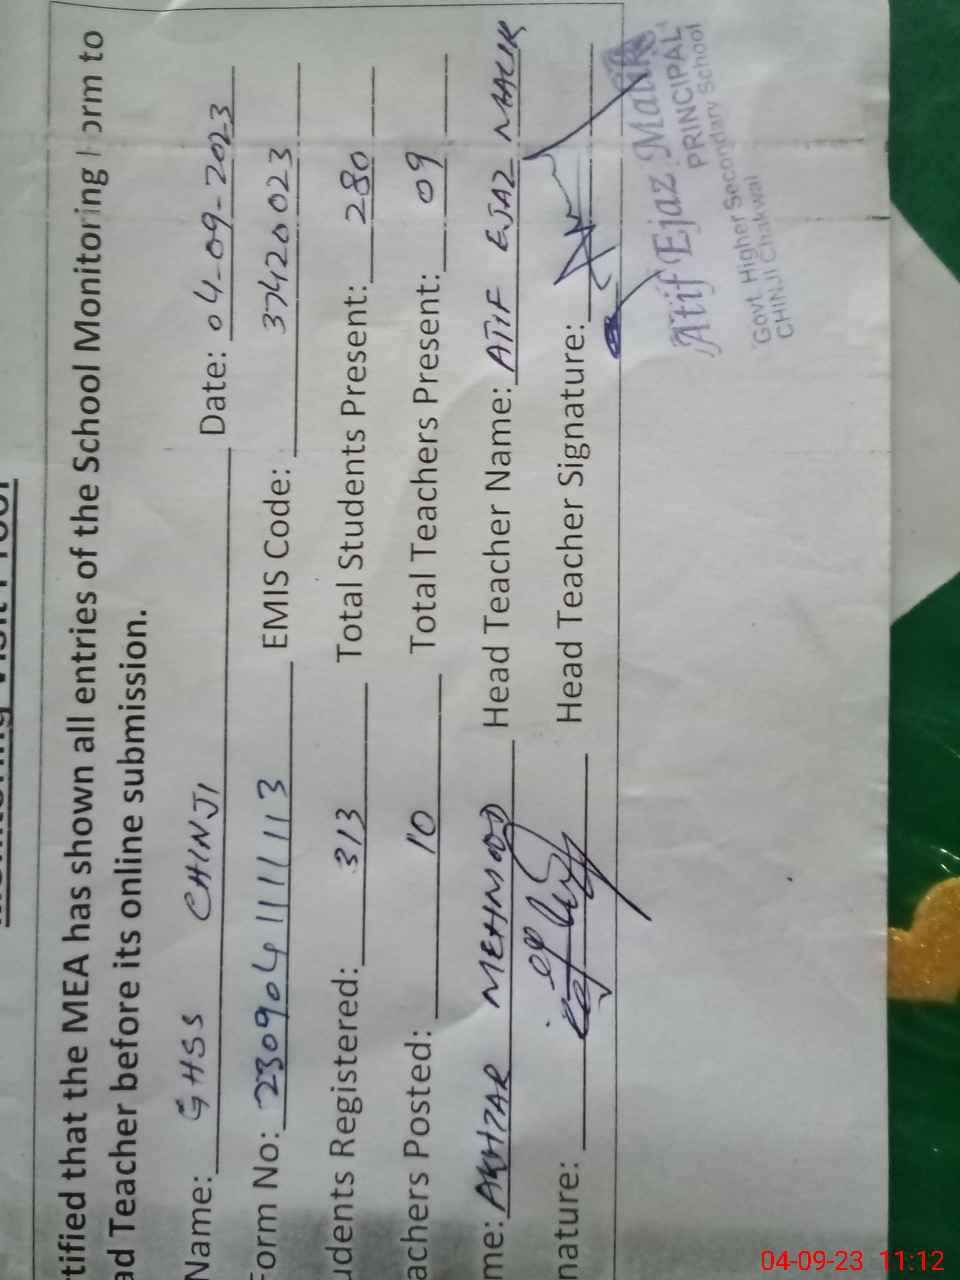 rtified that the MEA has shown all entries of the School Monitoring orm to
ad Teacher before its online submission.
Name: GHSS CHINJI Date: 04-09-2023
Form No: 230904111113 EMIS Code: 37420023
udents Registered: 313 Total Students Present: 280
achers Posted: 10 Total Teachers Present: 09
me: AKHTAR MEHMOOD Head Teacher Name: ATIF EJAZ MALIK
nature: Head Teacher Signature:
Atif Ejaz Malik
PRINCIPAL
Govt. Higher Secondary School
CHINJI Chakwal
04-09-23 11:12